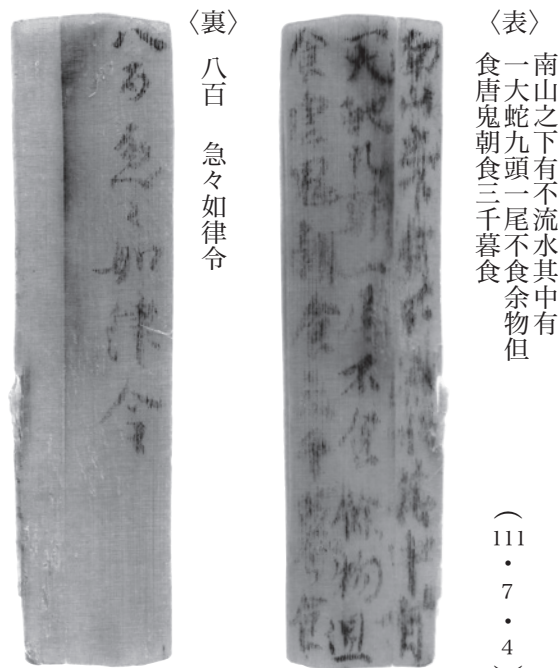 〈表〉
南山之下有不流水其中有
一大蛇九頭一尾不食余物但
食唐鬼朝食三千暮食
(111・7・4)
〈裏〉
八百　急々如律令
八百急々如律令